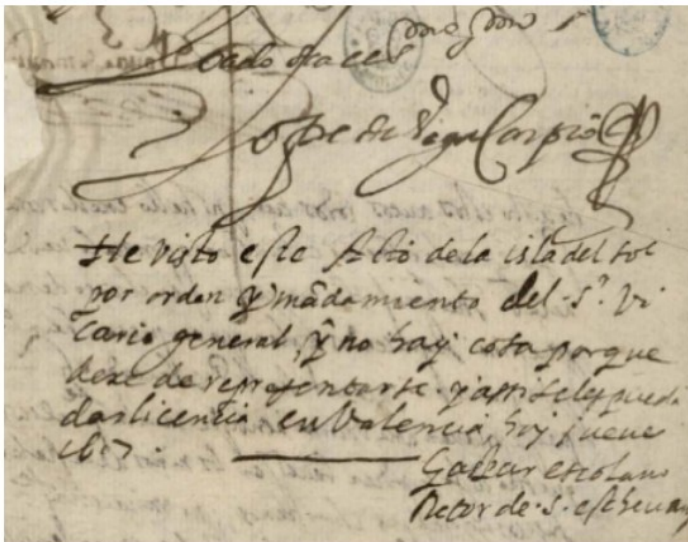 Lope de Vega Carpio
He visto este Auto de la isla del sol
por orden y mādamiento del .s.r Vi
cario general, y no hay cosa porque
dexe de representarse y assi se les puede
dar licencia en Valencia hoy jueue
Gaspar escolano
Retor de .s. estheuan